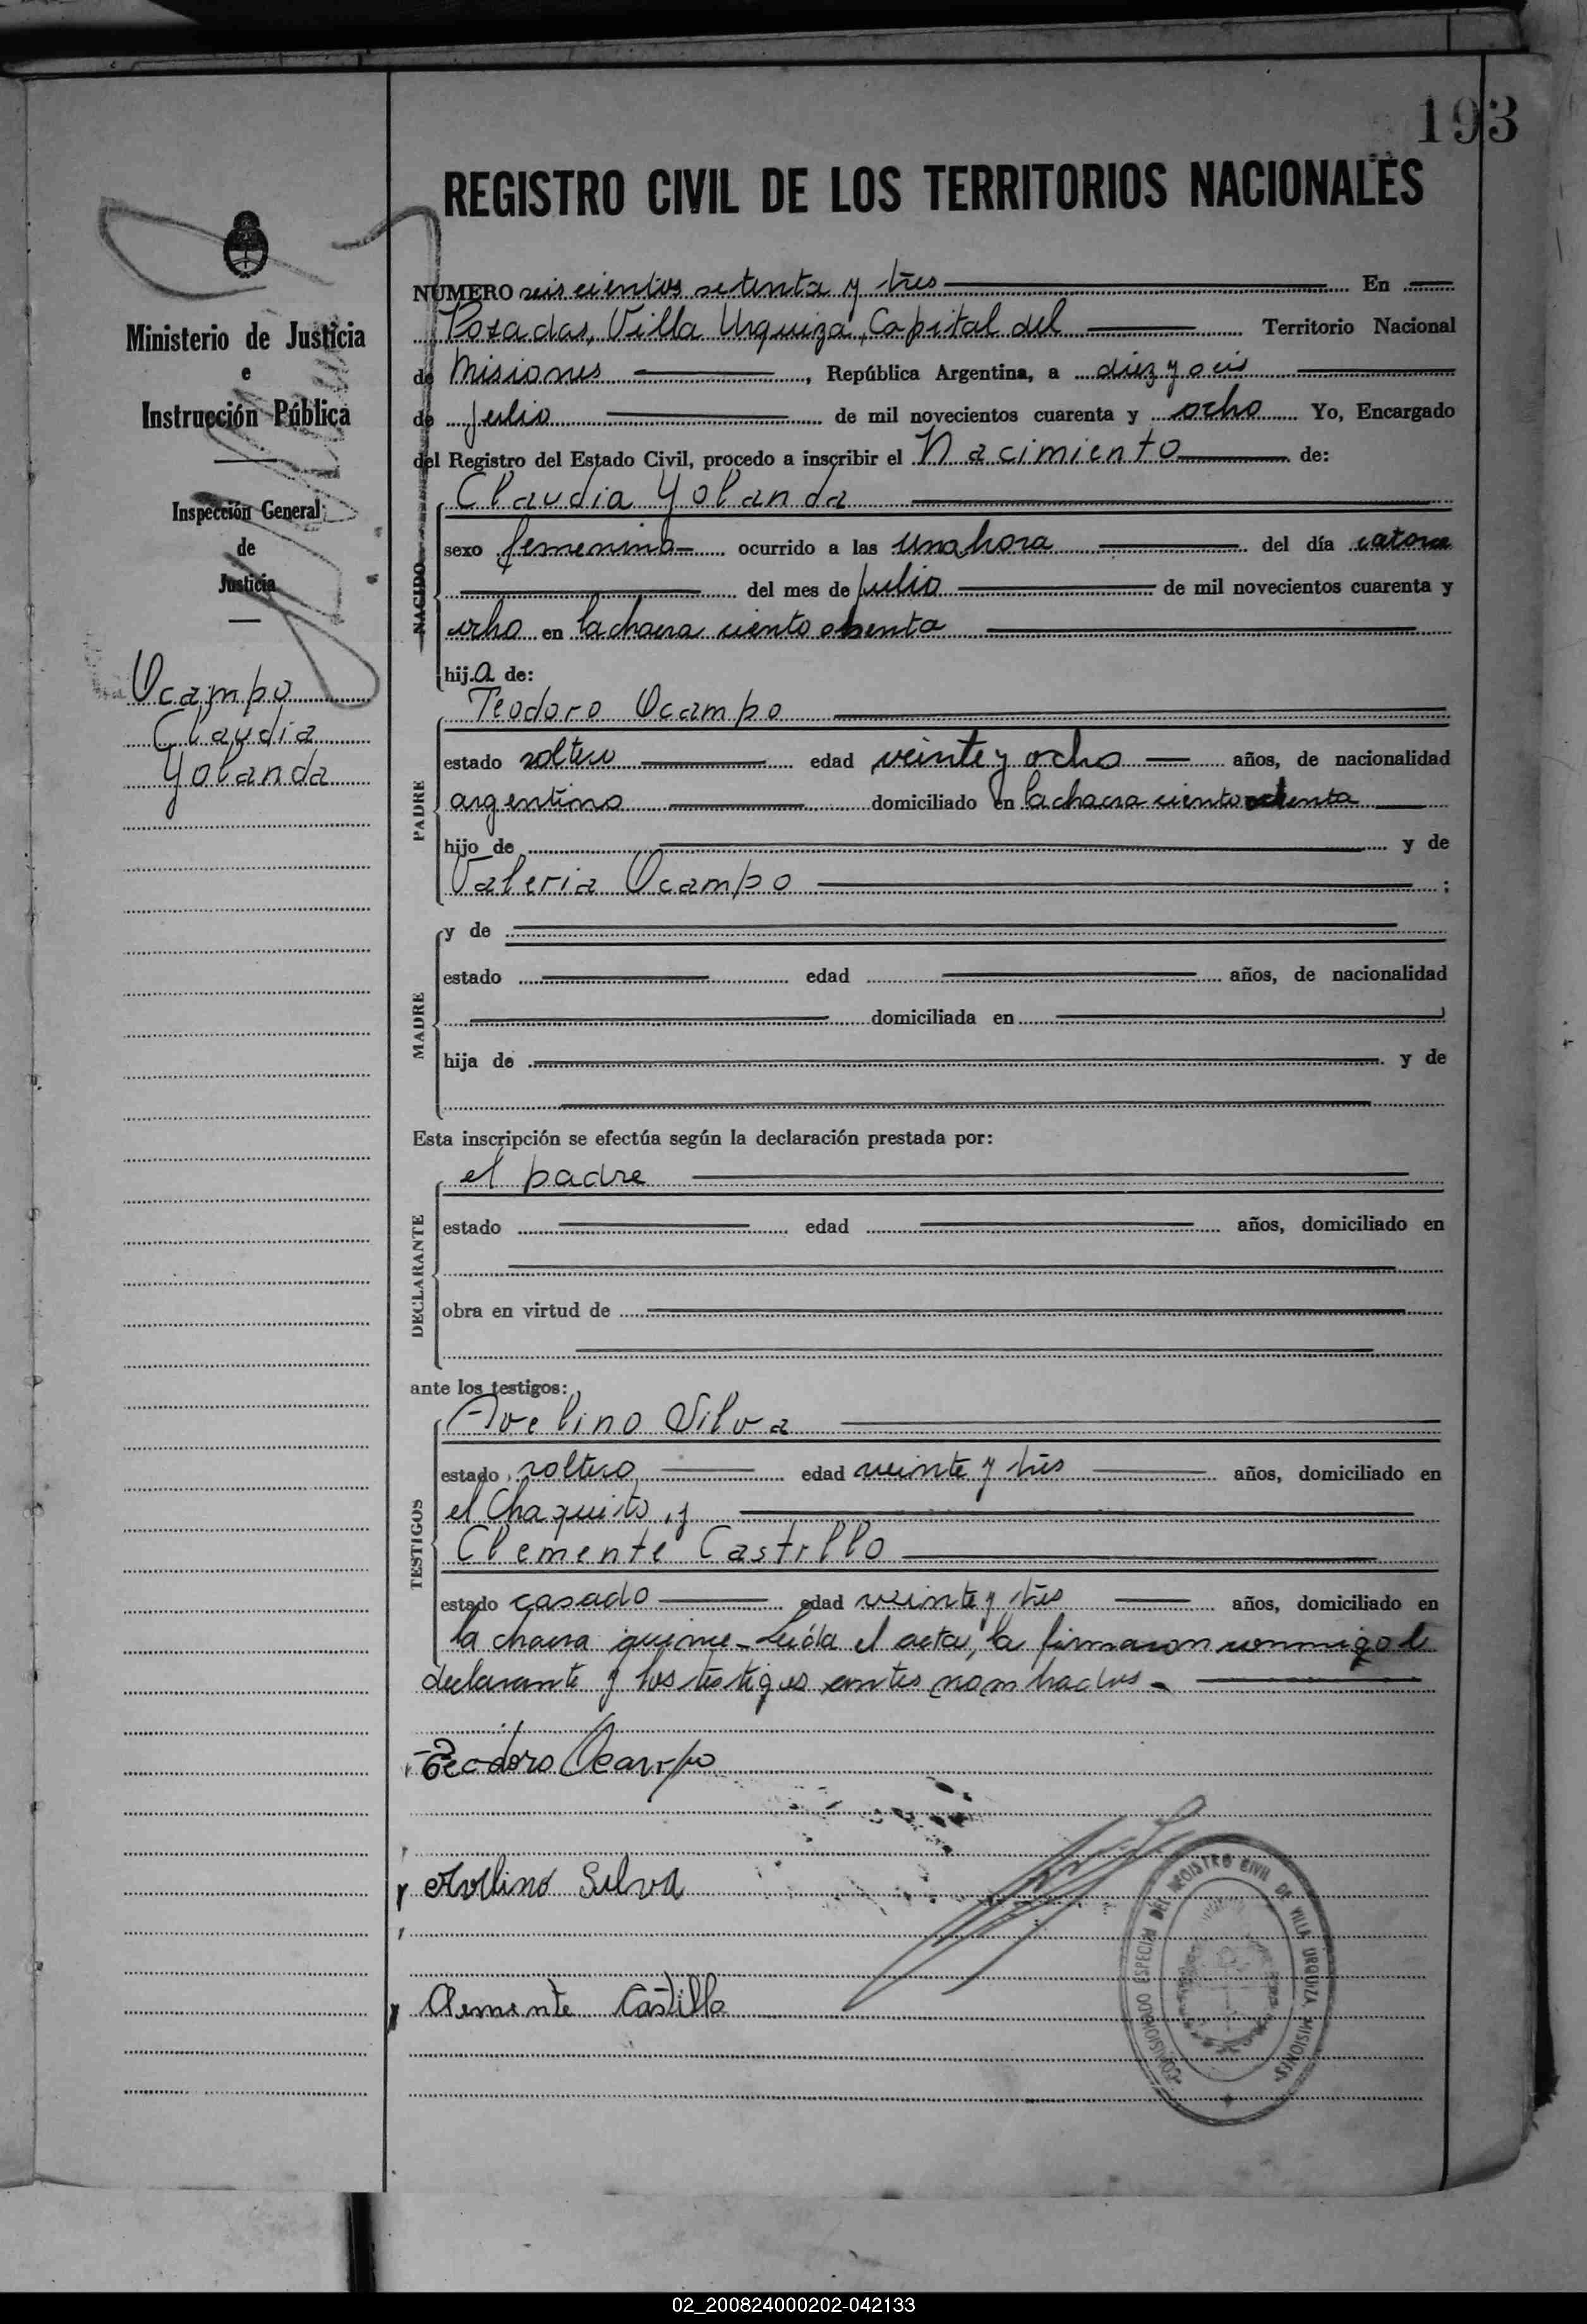 193
REGISTRO CIVIL DE LOS TERRITORIOS NACIONALES
Ministerio de Justicia
e
Instrucción Pública
Inspección General
de
Justicia
Ocampo
Claudia
Yolanda
NUMERO seiscientos setenta y tres En
Posadas, Villa Urquiza, Capital del Territorio Nacional
de Misiones, República Argentina, a diez y seis
de julio de mil novecientos cuarenta y ocho Yo, Encargado
del Registro del Estado Civil, procedo a inscribir el Nacimiento de:
NACIDO
Claudia Yolanda
sexo femenino ocurrido a las una hora del día catorce
del mes de julio de mil novecientos cuarenta y
ocho en la chacra ciento ochenta
hija de:
PADRE
Teodoro Ocampo
estado soltero edad veinte y ocho años, de nacionalidad
argentino domiciliado en la chacra ciento ochenta
hijo de y de
Valeria Ocampo ;
MADRE
y de
estado edad años, de nacionalidad
domiciliada en
hija de y de
Esta inscripción se efectúa según la declaración prestada por:
DECLARANTE
el padre
estado edad años, domiciliado en
obra en virtud de
ante los testigos:
TESTIGOS
Avelino Silva
estado soltero edad veinte y tres años, domiciliado en
el Chaquito, y
Clemente Castillo
estado casado edad veinte y tres años, domiciliado en
la chacra quince - Leída el acta, la firmaron conmigo el
declarante y los testigos antes nombrados.
Teodoro Ocampo
Avelino Silva
Clemente Castillo
COMISIONADO ESPECIAL DEL REGISTRO CIVIL DE VILLA URQUIZA MISIONES
02_200824000202-042133